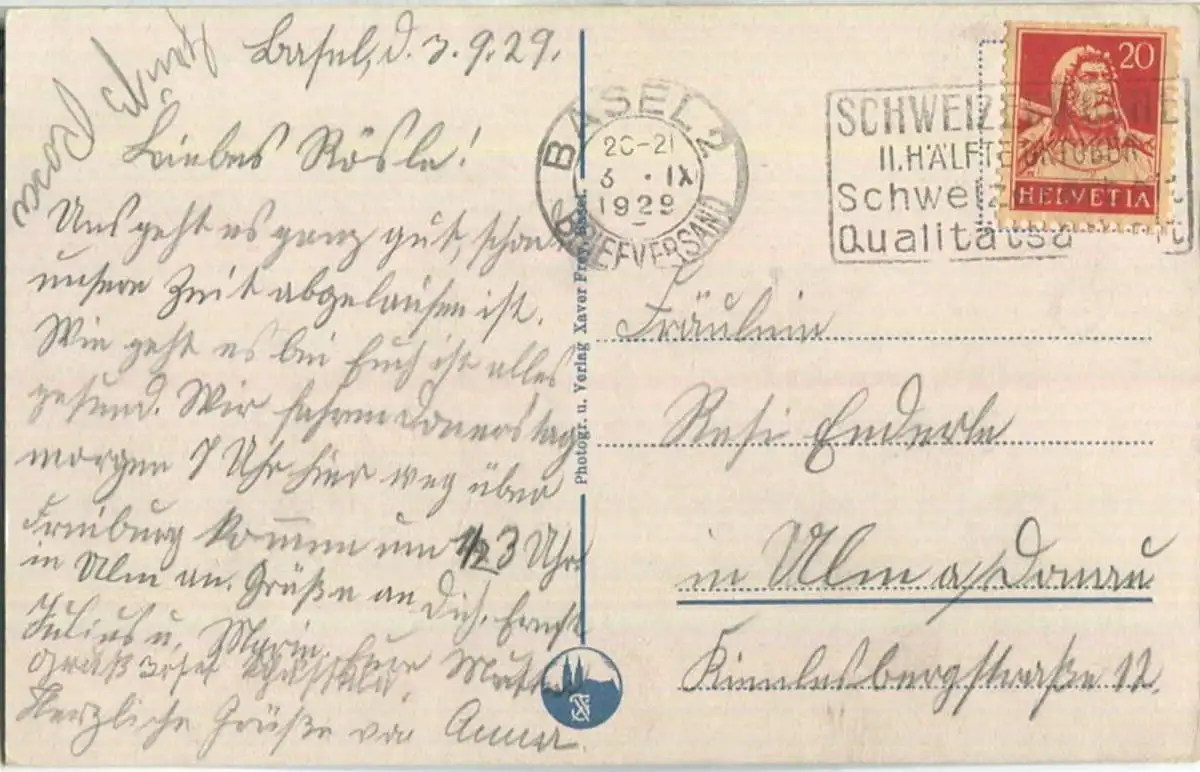 Basel, d. 3.9.29.
Liebes Rösle!
Uns geht es ganz gut, schon
unsere Zeit abgelaufen ist.
Wie geht es bei Euch ist alles
gesund. Wir fahren Donnerstag
morgen 7 Uhr hier weg über
Freiburg kommen um 1/23 Uhr
in Ulm an. Grüße an Dich, Ernst
Julius u. Marie. Eure Mutter
Gruß Josef
Herzliche Grüße von Anna.
BASEL 2
20-21
3. IX
1929
BRIEFVERSAND
SCHWEIZERWOCHE
II. HÄLFTE OKTOBER
Schweizer
Qualitätsa
20
HELVETIA
Photogr. u. Verlag Xaver Frey, Basel.
Fräulein
Resi Enderle
in Ulm a/Donau
Kienlesbergstraße 12.